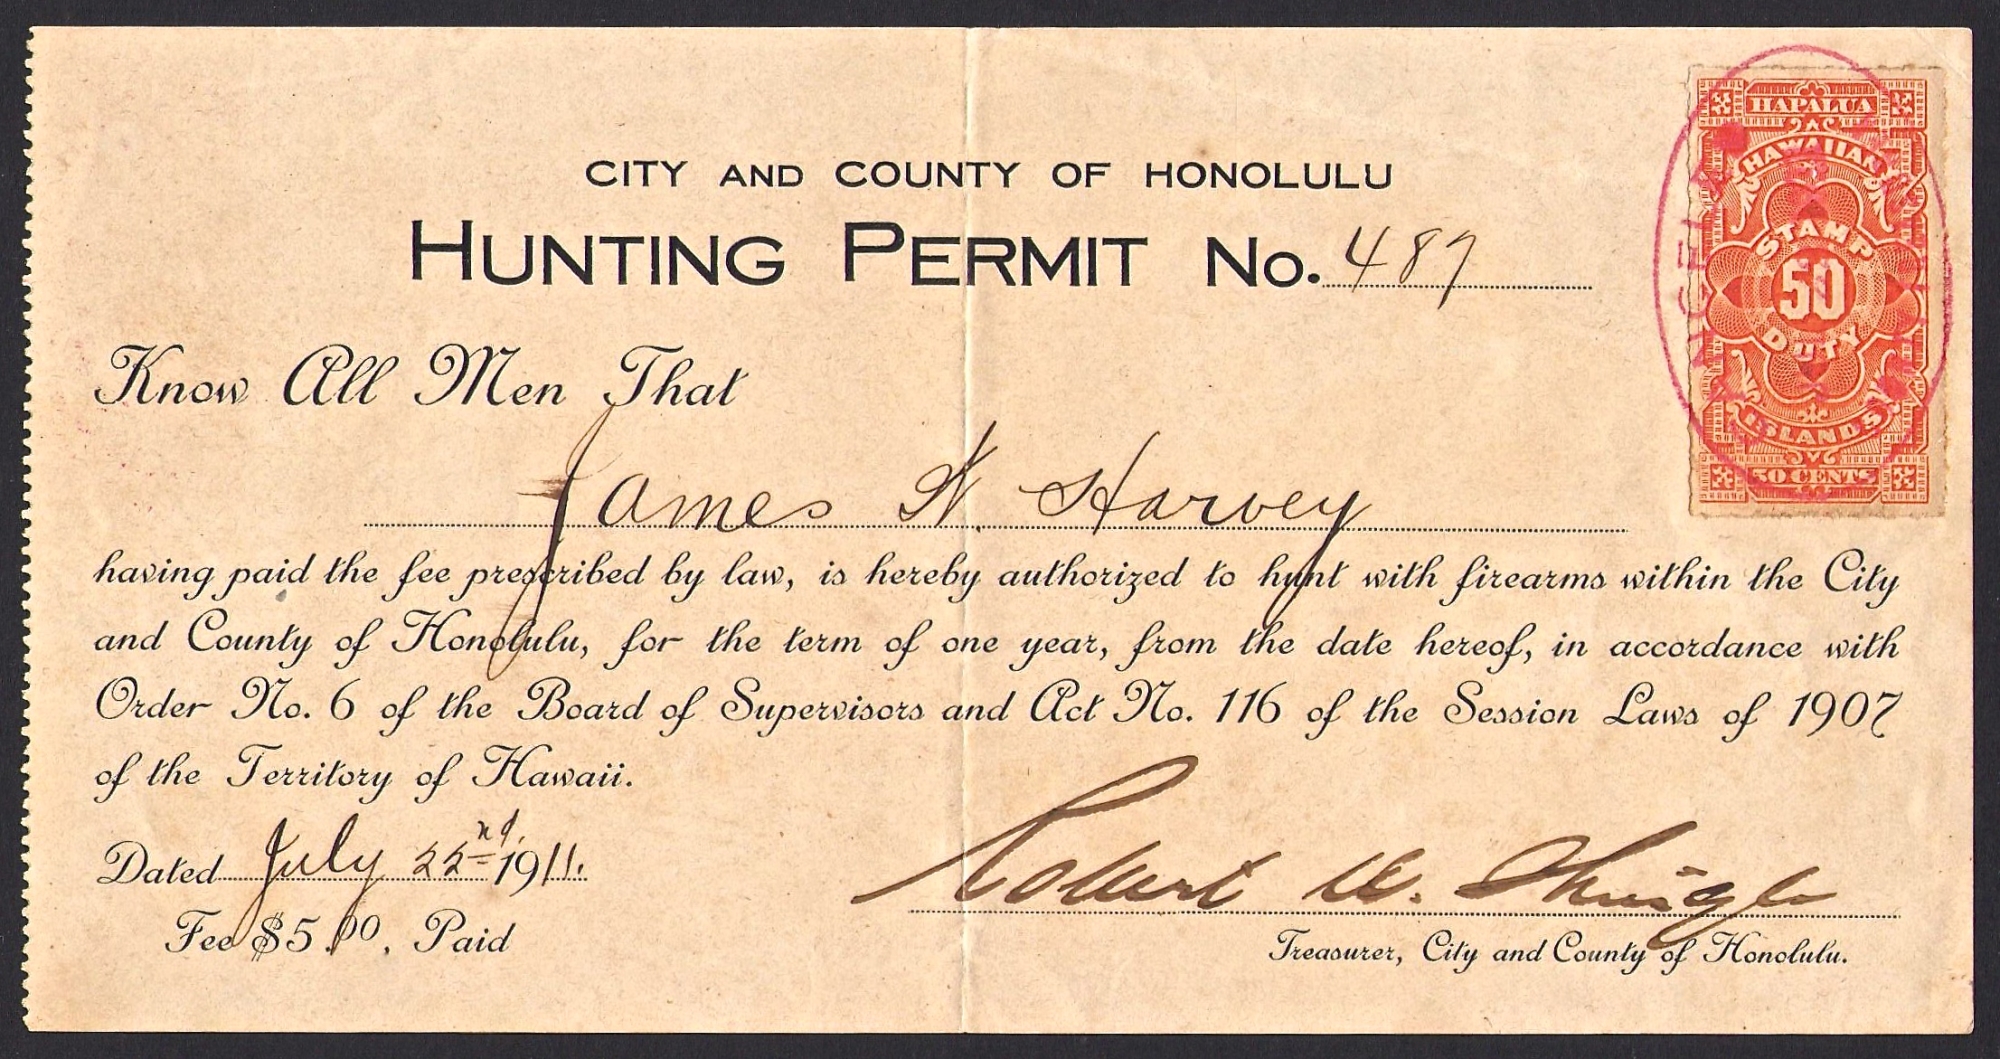 CITY AND COUNTY OF HONOLULU
HUNTING PERMIT NO. 487
Know All Men That
James W. Harvey
having paid the fee prescribed by law, is hereby authorized to hunt with firearms within the City
and County of Honolulu, for the term of one year, from the date hereof, in accordance with
Order No. 6 of the Board of Supervisors and Act No. 116 of the Session Laws of 1907
of the Territory of Hawaii.
Dated July 22nd 1911.
Fee $5.00, Paid
Robert W. Shingle
Treasurer, City and County of Honolulu.
HAPALUA
HAWAIIAN
STAMP
50
DUTY
ISLANDS
50 CENTS